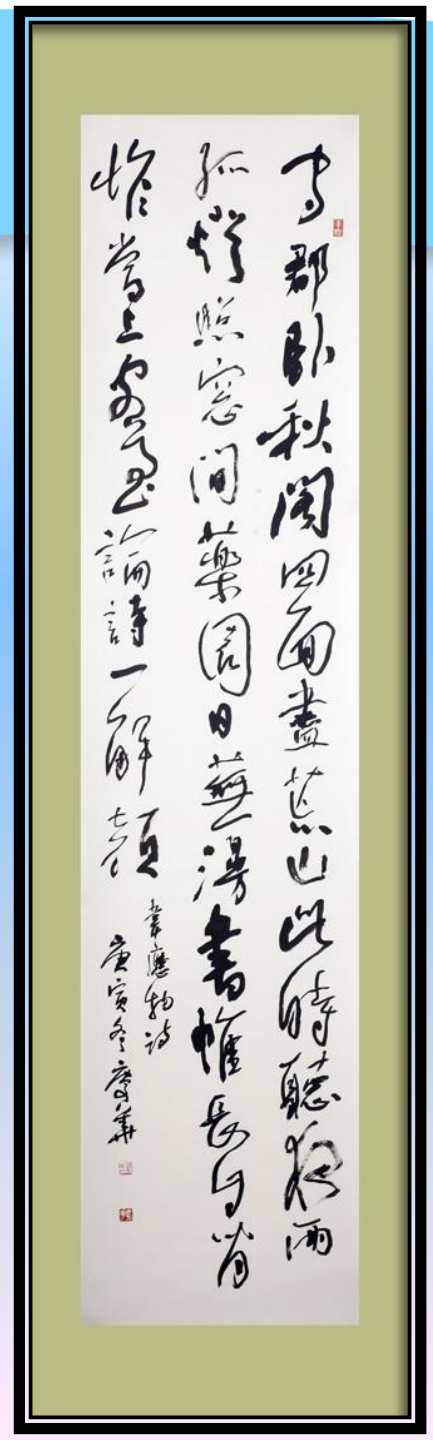 守郡臥秋閣四面盡荒山此時聽夜雨
孤燈照窗間藥園日蕪漫書帷長自閒
惟當上客至論詩一解顏
韋應物詩
庚寅冬慶華